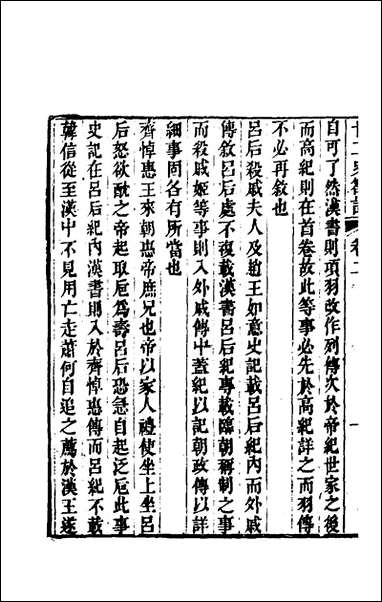 廿二史劄記 卷二 一
自可了然漢書則項羽改作列傳次於帝紀世家之後
而高紀則在首卷故此等事必先於高紀詳之而羽傳
不必再敘也
呂后殺戚夫人及趙王如意史記載呂后紀內而外戚
傳敘呂后處不復載漢書呂后紀專載臨朝稱制之事
而殺戚姬等事則入外戚傳中蓋紀以記朝政傳以詳
細事固各有所當也
齊悼惠王來朝惠帝庶兄也帝以家人禮使坐上坐呂
后怒欲酖之帝起取巵爲壽呂后恐急自起泛巵此事
史記在呂后紀內漢書則入於齊悼惠傳而呂紀不載
韓信從至漢中不見用亡走蕭何自追之薦於漢王遂